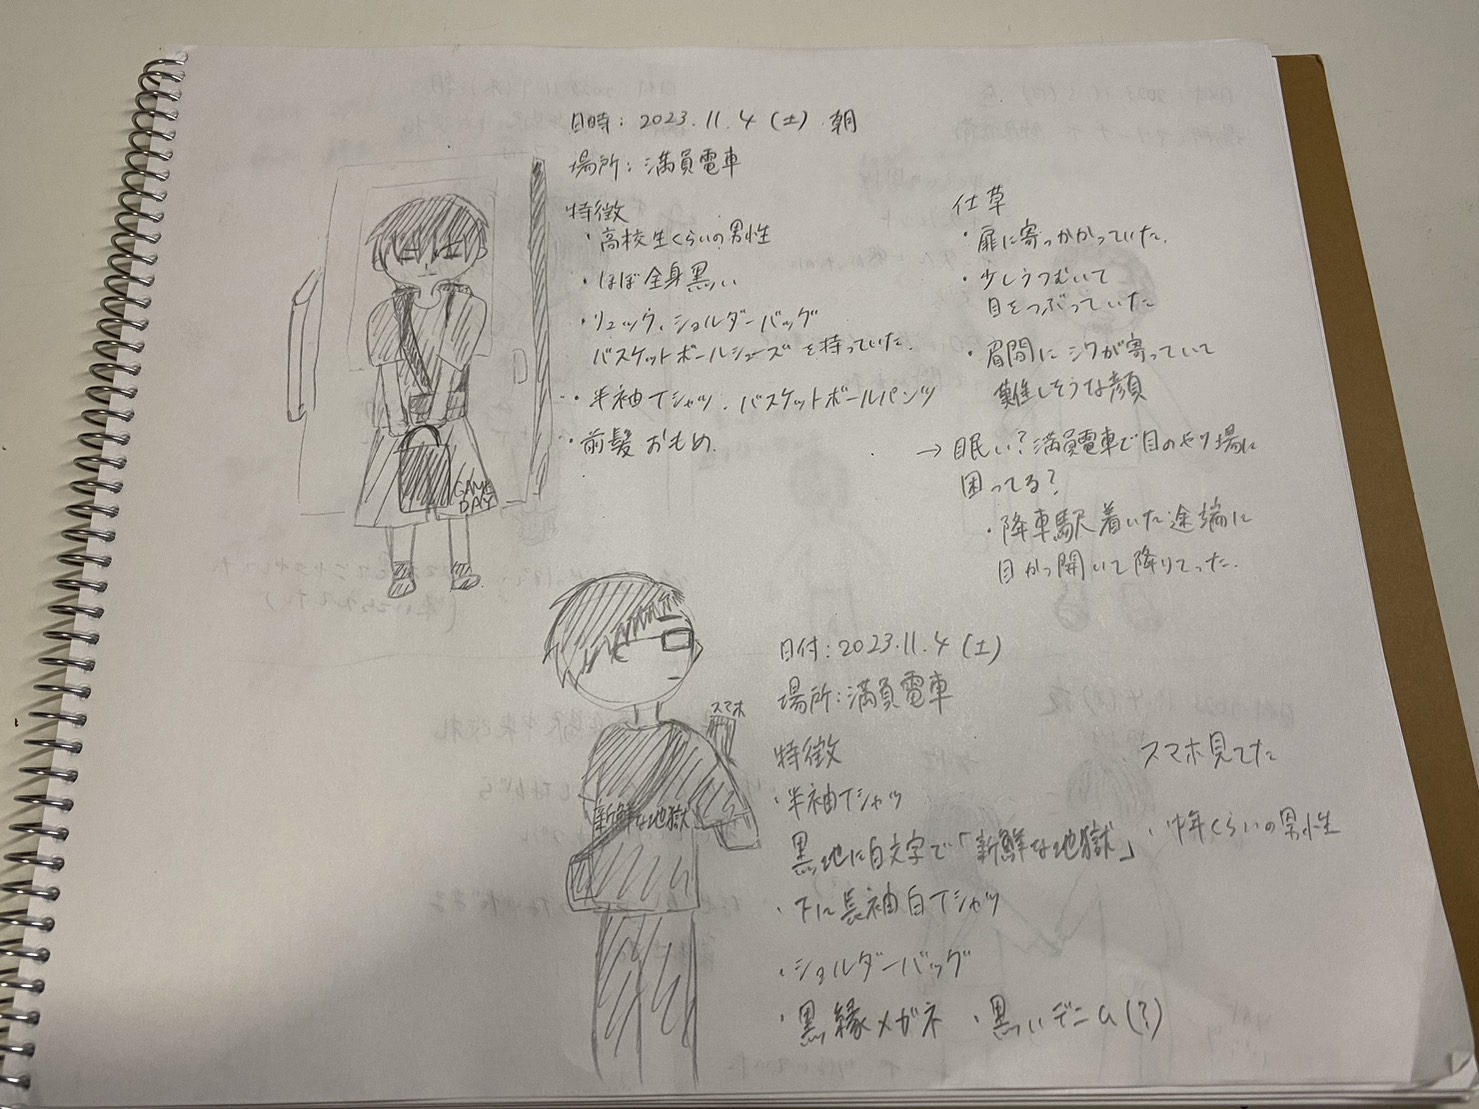 日時：2023.11.4（土）朝
場所：満員電車
特徴
・高校生くらいの男性
・ほぼ全身黒い
・リュック、ショルダーバッグ
バスケットボールシューズを持っていた。
・半袖Tシャツ、バスケットボールパンツ
・前髪おもめ
仕草
・扉に寄っかかっていた。
・少しうつむいて
目をつぶっていた
・眉間にシワが寄っていて
難しそうな顔
→眠い？満員電車で目のやり場に
困ってる？
・降車駅着いた途端に
目かっ開いて降りてった.
GAME
DAY
日付：2023.11.4（土）
場所：満員電車
特徴
・半袖Tシャツ
黒地に白文字で「新鮮な地獄」
・下に長袖白Tシャツ
・ショルダーバッグ
・黒縁メガネ ・黒いデニム(？)
・スマホ見てた
・中年くらいの男性
スマホ
新鮮な地獄